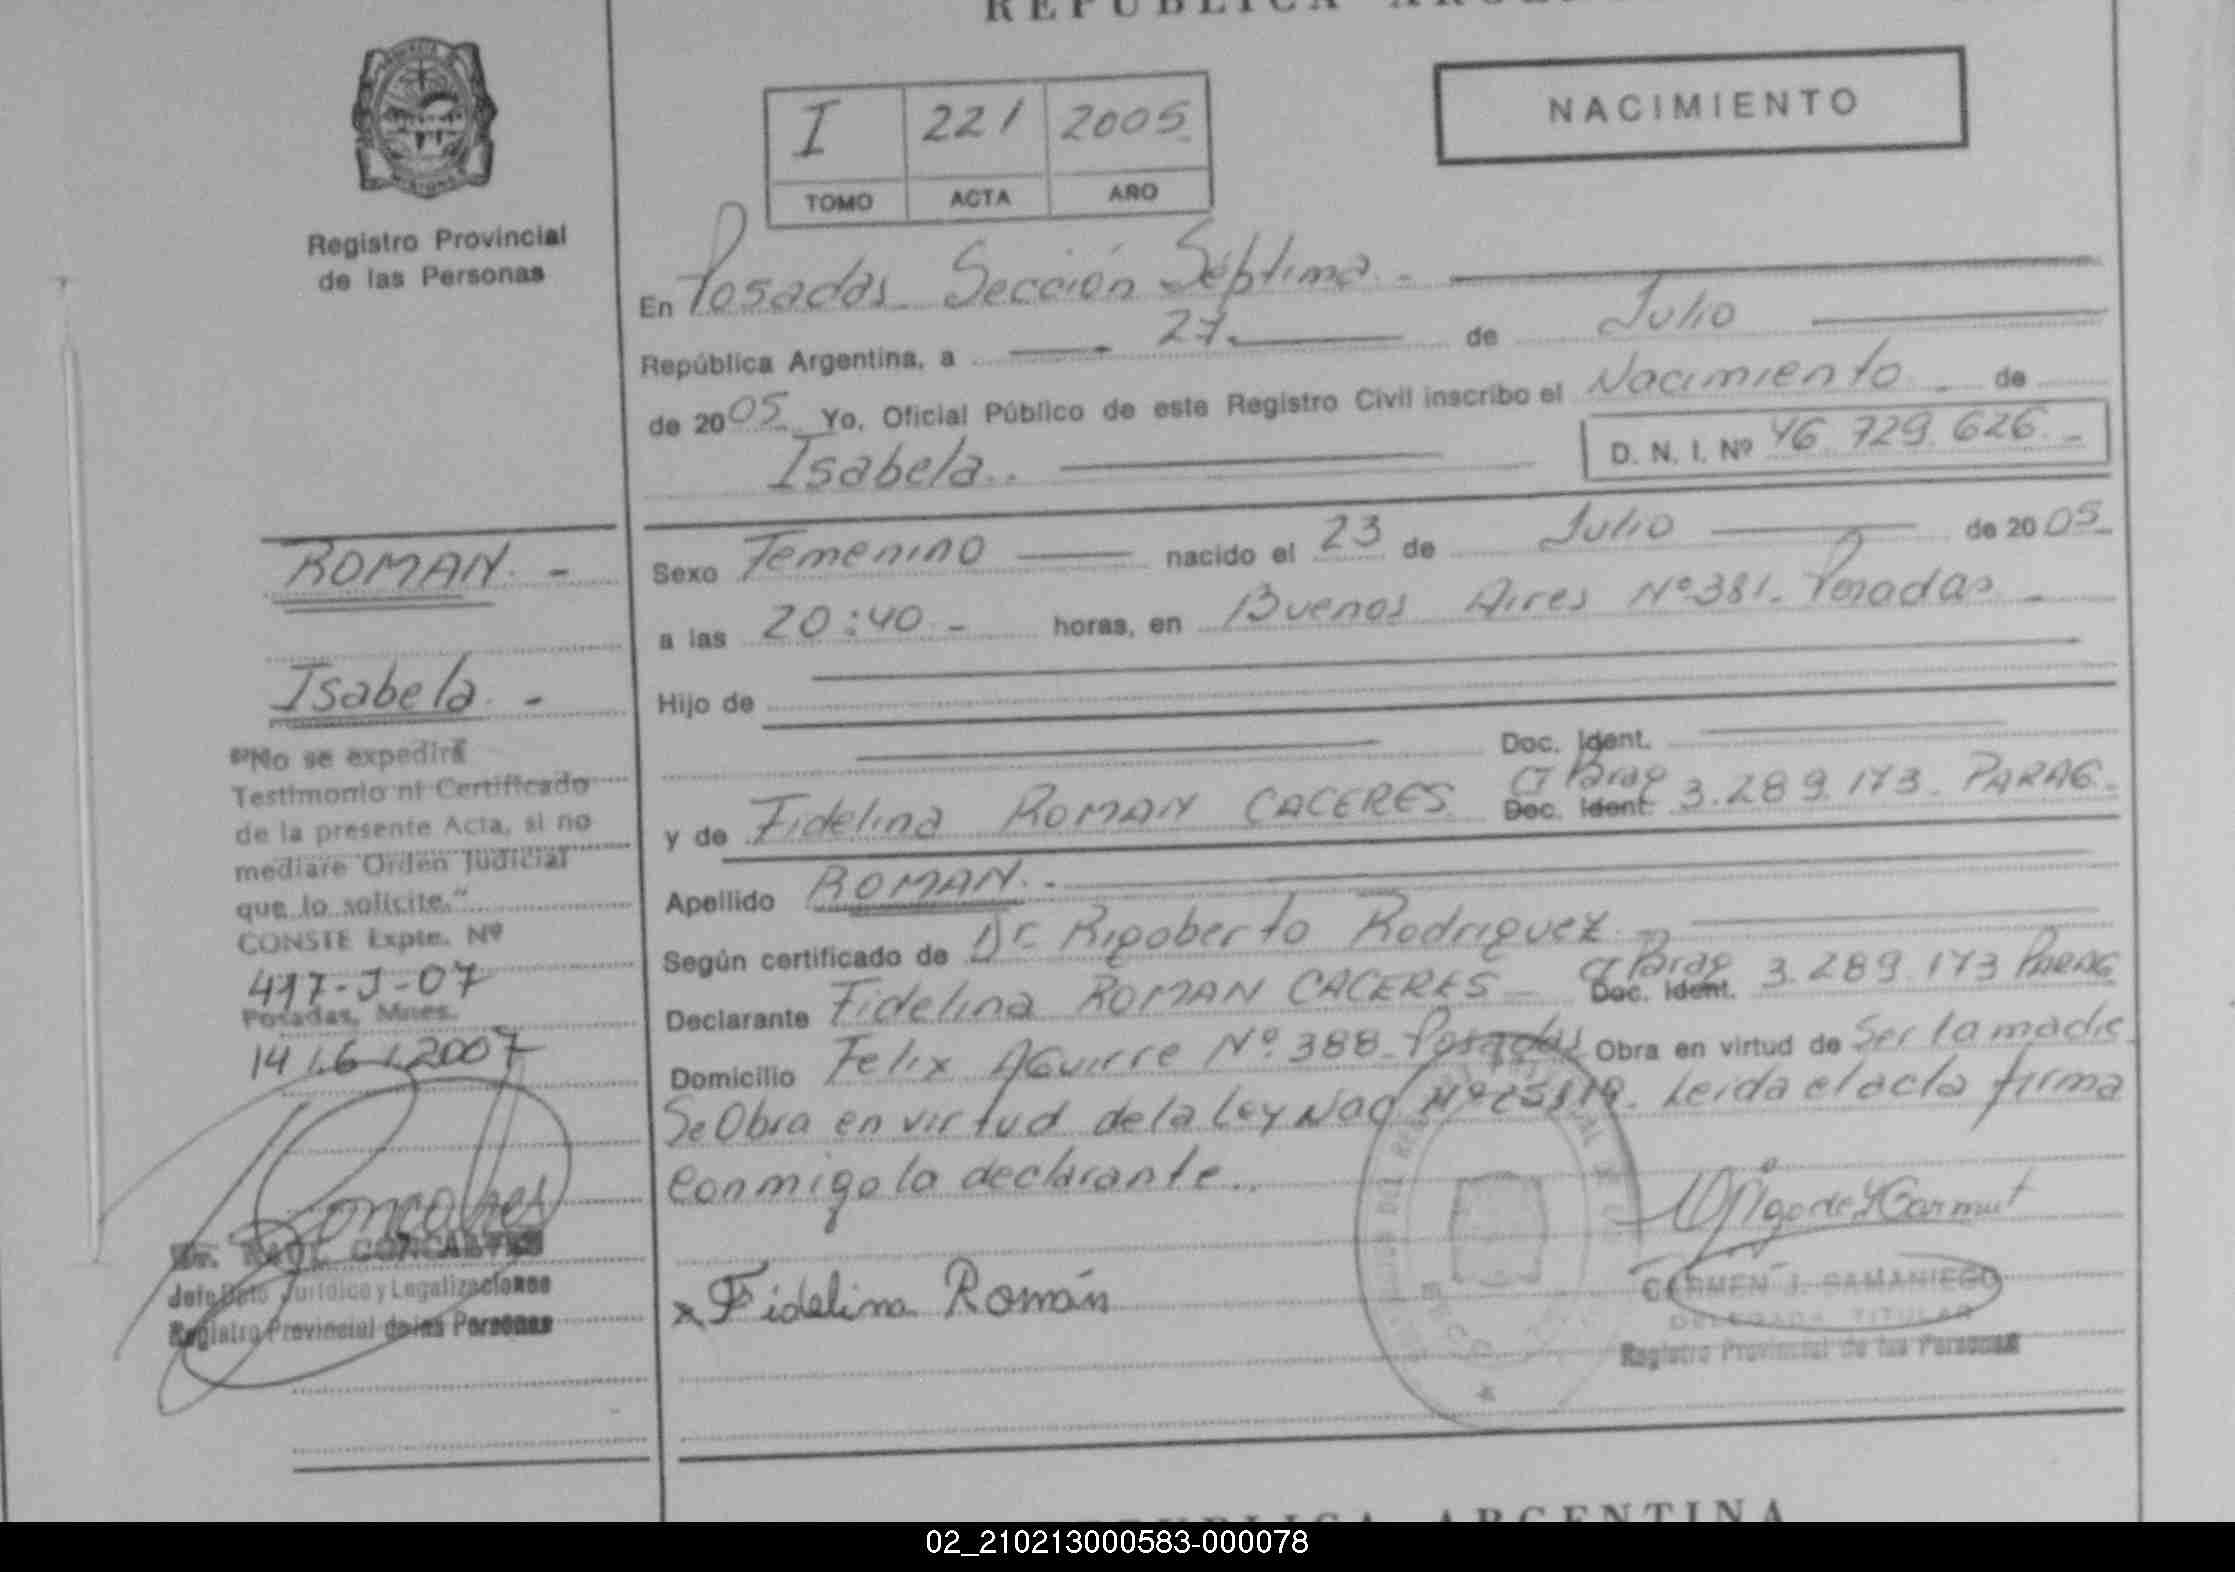 REPUBLICA
MISIONES
Registro Provincial
de las Personas
I 221 2005
TOMO ACTA AÑO
NACIMIENTO
En Posadas Sección Séptima
República Argentina, a 27 de Julio
de 2005 Yo, Oficial Público de este Registro Civil inscribo el Nacimiento de
Isabela
D. N. I. Nº 46.729.626
ROMAN
Isabela
"No se expedirá
Testimonio ni Certificado
de la presente Acta, si no
mediare Orden Judicial
que lo solicite."
CONSTE Expte. Nº
417-J-07
Posadas, Mnes.
14/6/2007
Goncalves
Dr. RAUL GONCALVES
Jefe Dpto Jurídico y Legalizaciones
Registro Provincial de las Personas
Sexo Femenino nacido el 23 de Julio de 2005
a las 20:40 horas, en Buenos Aires Nº 381. Posadas
Hijo de
Doc. Ident.
y de Fidelina ROMAN CACERES CI Parag Doc. Ident. 3.289.173. PARAG.
Apellido ROMAN
Según certificado de Dr. Rigoberto Rodriguez
Declarante Fidelina ROMAN CACERES CI Parag Doc. Ident. 3.289.173 PARAG
Domicilio Felix AGuirre Nº 388 Posadas Obra en virtud de Ser la madre
Se Obra en virtud de la Ley Nac Nº Leida el acta firma
conmigo la declarante
x Fidelina Román
CARMEN J. SAMANIEGO
DELEGADA TITULAR
Registro Provincial de las Personas
REPUBLICA ARGENTINA
02_210213000583-000078